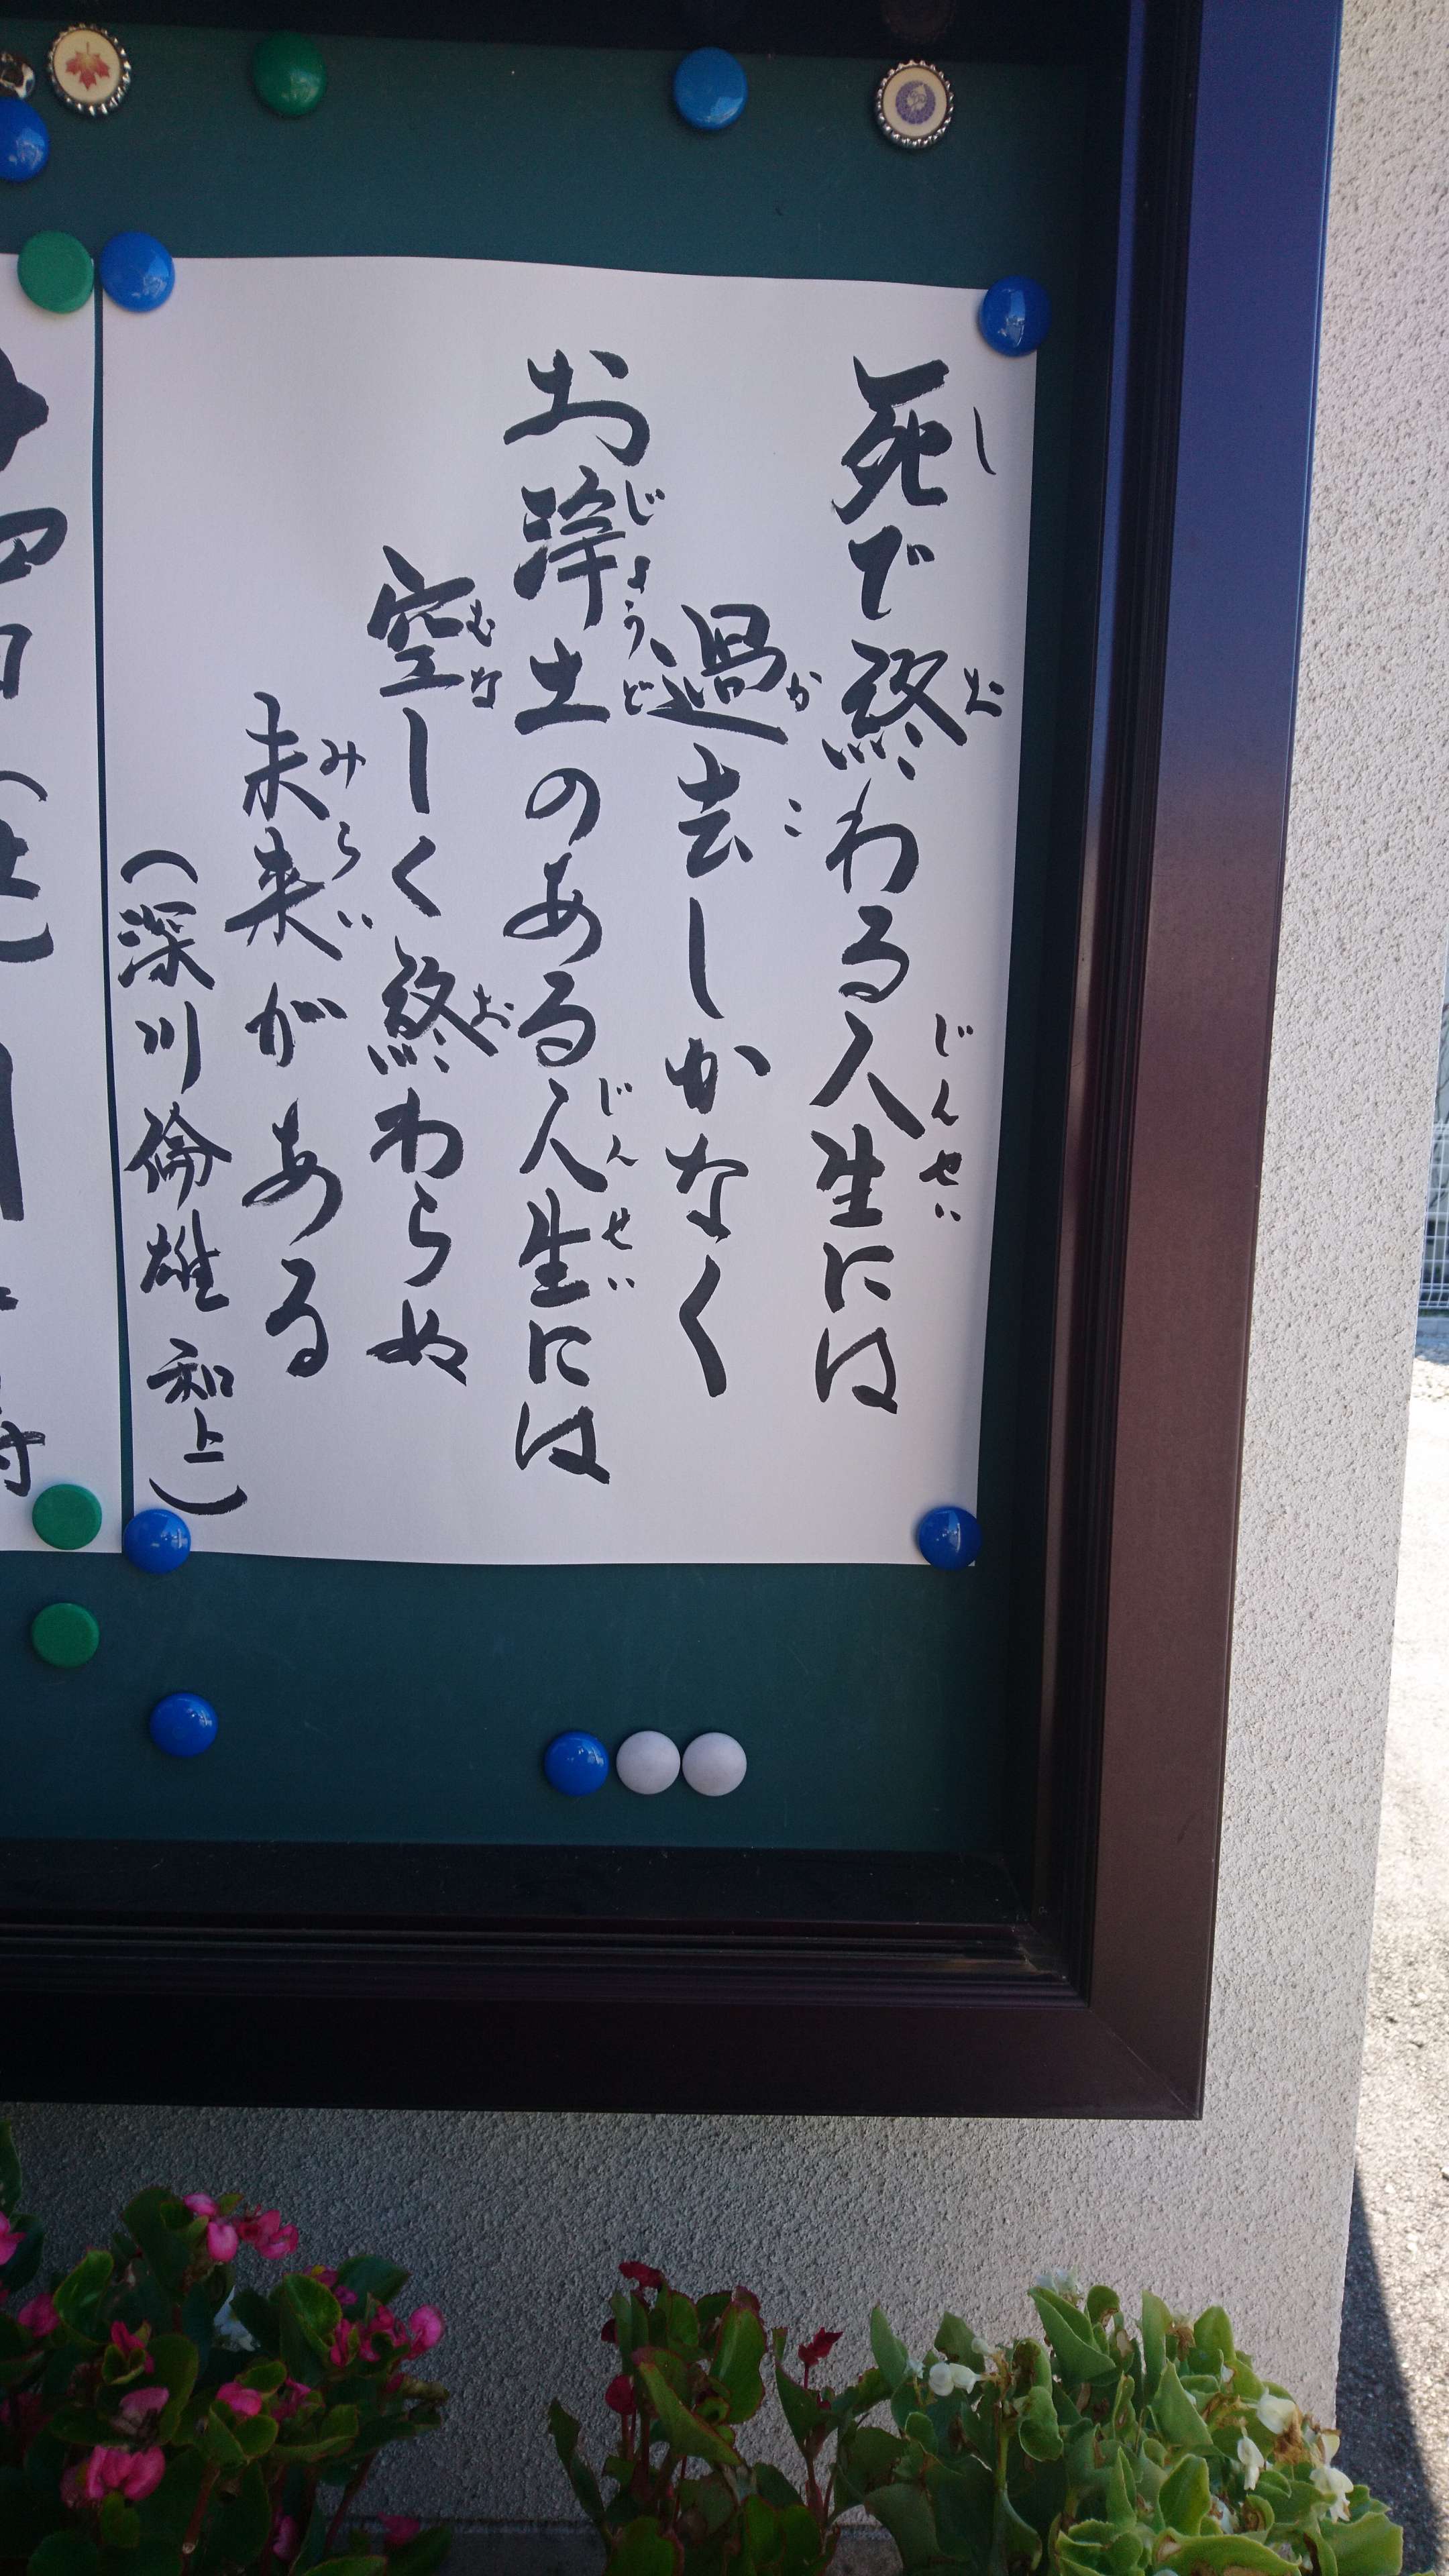 死で終わる人生には
過去しかなく
お浄土のある人生には
空しく終わらぬ
未来がある
(深川倫雄 和上)